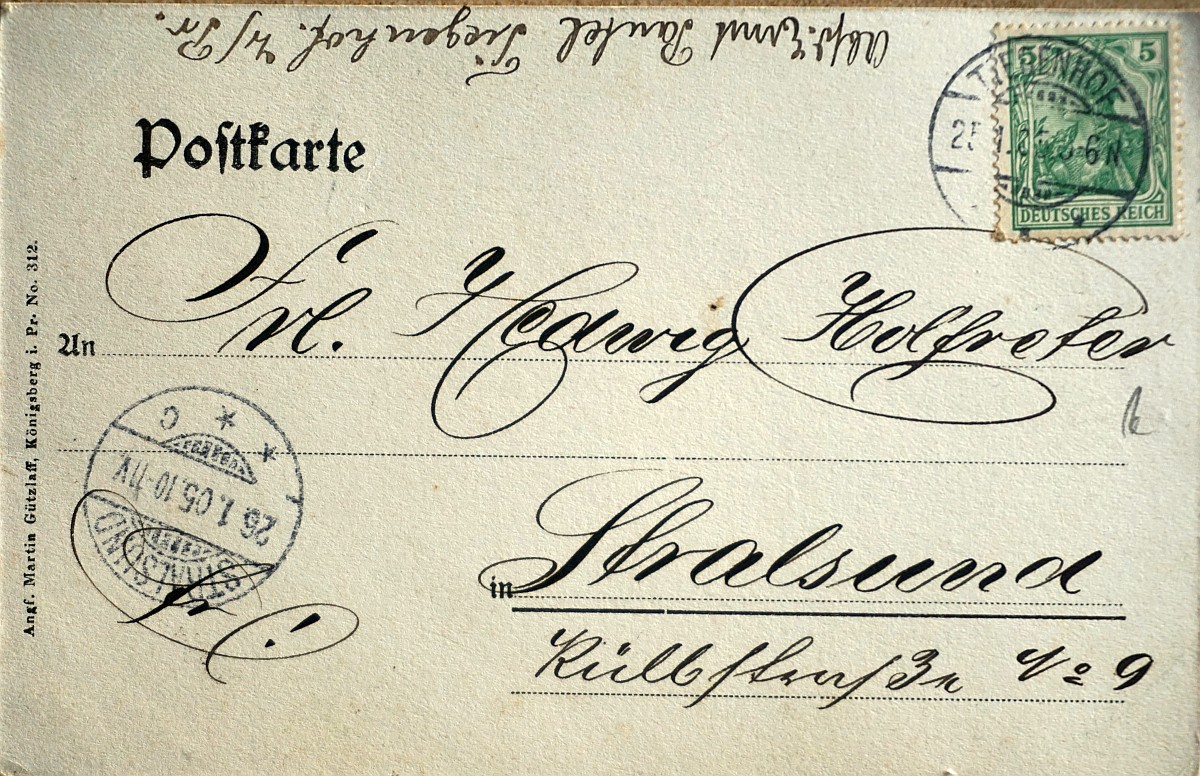 Abs: Ernst Pantel Tiegenhof. W/Pr.
5 5
DEUTSCHES REICH
TIEGENHOF
Postkarte
An Frl. Hedwig Holfreter
in Stralsund
Külbstraße No 9
fr!
STRALSUND
26.1.05.10-11V
* * C
Angf. Martin Gützlaff, Königsberg i. Pr. No. 312.